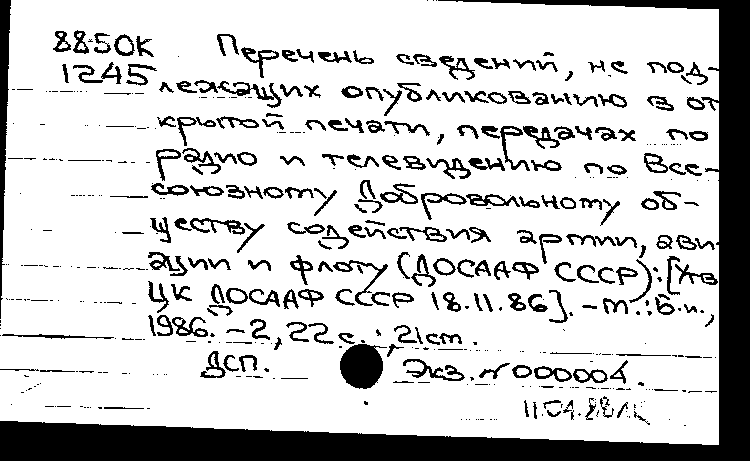 88-50К Перечень сведений, не под-
1245 лежащих опубликованию в от
крытой печати, передачах по
радио и телевидению по Все-
союзному Добровольному об-
ществу содействия армии, ави
ации и флоту (ДОСААФ СССР): [Утв
ЦК ДОСААФ СССР 18.11.86]. - М.: Б.и.,
1986. - 2, 22 с.; 21 см.
ДСП. Экз. № 000004.
11.04.88